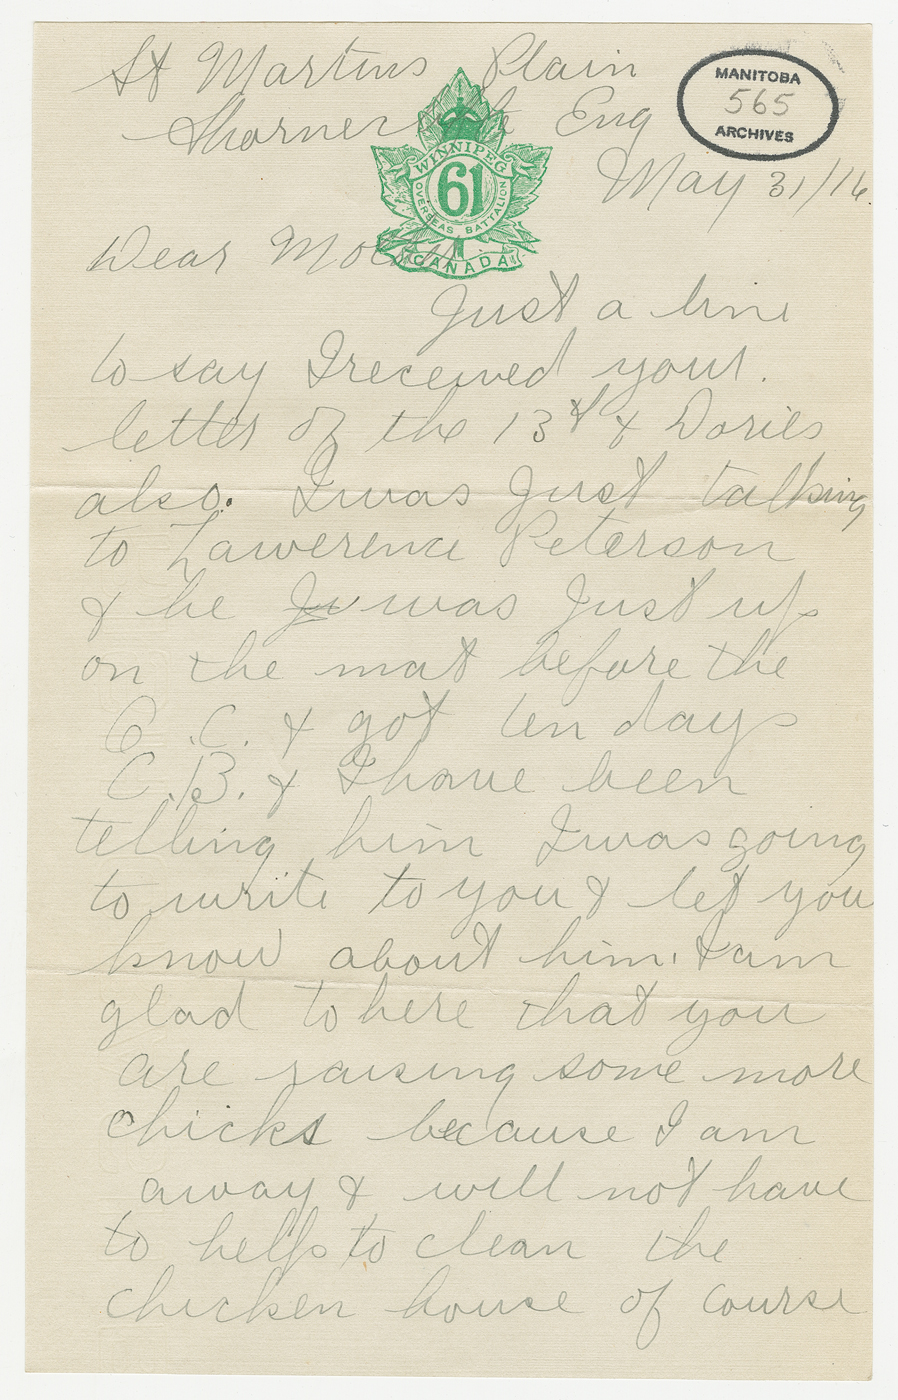 St Martins Plain
Shorncliffe Eng
MANITOBA
565
ARCHIVES
May 31/16.
WINNIPEG
61
OVERSEAS BATTALION
CANADA
Dear Mother
Just a line
to say I received your.
letter of the 13th & Dories
also. I was Just talking
to Lawerence Peterson
& he was Just up
on the mat before the
O.C. & got ten days
C.B. & I have been
telling him I was going
to write to you & let you
know about him. I am
glad to here that you
are raising some more
chicks because I am
away & will not have
to help to clean the
chicken house of course